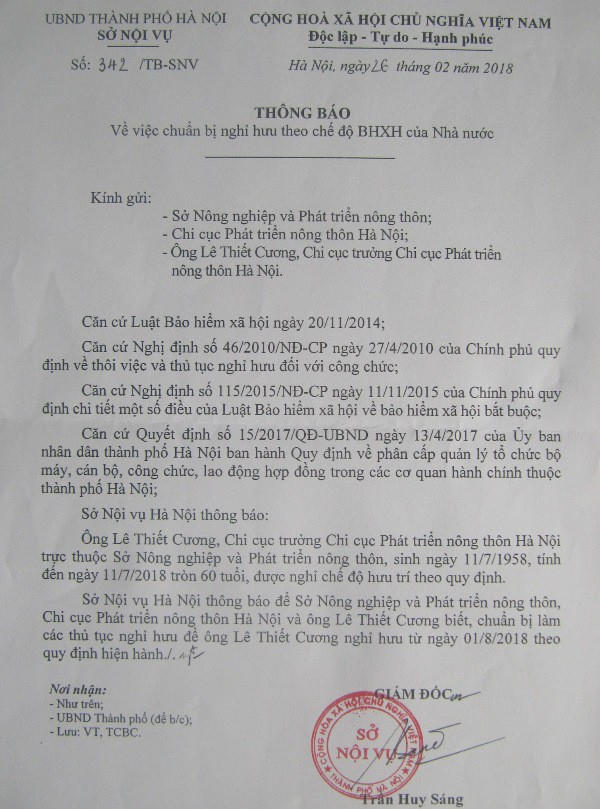 UBND THÀNH PHỐ HÀ NỘI
SỞ NỘI VỤ
Số: 342 /TB-SNV
CỘNG HOÀ XÃ HỘI CHỦ NGHĨA VIỆT NAM
Độc lập - Tự do - Hạnh phúc
Hà Nội, ngày 26 tháng 02 năm 2018
THÔNG BÁO
Về việc chuẩn bị nghỉ hưu theo chế độ BHXH của Nhà nước
Kính gửi:
- Sở Nông nghiệp và Phát triển nông thôn;
- Chi cục Phát triển nông thôn Hà Nội;
- Ông Lê Thiết Cương, Chi cục trưởng Chi cục Phát triển
nông thôn Hà Nội.
Căn cứ Luật Bảo hiểm xã hội ngày 20/11/2014;
Căn cứ Nghị định số 46/2010/NĐ-CP ngày 27/4/2010 của Chính phủ quy
định về thôi việc và thủ tục nghỉ hưu đối với công chức;
Căn cứ Nghị định số 115/2015/NĐ-CP ngày 11/11/2015 của Chính phủ quy
định chi tiết một số điều của Luật Bảo hiểm xã hội về bảo hiểm xã hội bắt buộc;
Căn cứ Quyết định số 15/2017/QĐ-UBND ngày 13/4/2017 của Ủy ban
nhân dân thành phố Hà Nội ban hành Quy định về phân cấp quản lý tổ chức bộ
máy, cán bộ, công chức, lao động hợp đồng trong các cơ quan hành chính thuộc
thành phố Hà Nội;
Sở Nội vụ Hà Nội thông báo:
Ông Lê Thiết Cương, Chi cục trưởng Chi cục Phát triển nông thôn Hà Nội
trực thuộc Sở Nông nghiệp và Phát triển nông thôn, sinh ngày 11/7/1958, tính
đến ngày 11/7/2018 tròn 60 tuổi, được nghỉ chế độ hưu trí theo quy định.
Sở Nội vụ Hà Nội thông báo để Sở Nông nghiệp và Phát triển nông thôn,
Chi cục Phát triển nông thôn Hà Nội và ông Lê Thiết Cương biết, chuẩn bị làm
các thủ tục nghỉ hưu để ông Lê Thiết Cương nghỉ hưu từ ngày 01/8/2018 theo
quy định hiện hành./.
Nơi nhận:
- Như trên;
- UBND Thành phố (để b/c);
- Lưu: VT, TCBC.
GIÁM ĐỐC
CỘNG HÒA XÃ HỘI CHỦ NGHĨA VIỆT NAM
SỞ
NỘI VỤ
THÀNH PHỐ HÀ NỘI
Trần Huy Sáng